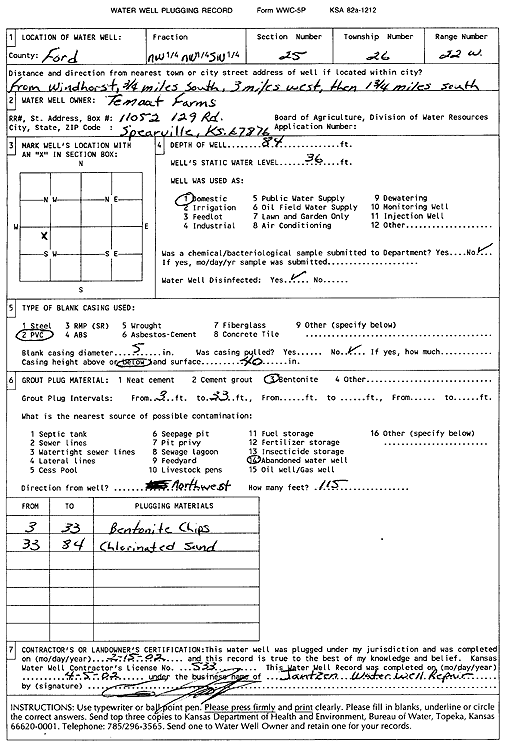 WATER WELL PLUGGING RECORD Form WWC-5P KSA 82a-1212
1 LOCATION OF WELL: Fraction Section Number Township Number Range Number
County: Ford NW 1/4 NW 1/4 SW 1/4 25 26 22 W.
Distance and direction from nearest town or city street address of well if located within city?
From Windhorst, 3/4 miles South, 3 miles west, then 1 3/4 miles south
2 WATER WELL OWNER: Temaat Farms
RR#, St. Address, Box #: 11052 129 Rd. Board of Agriculture, Division of Water Resources
City, State, ZIP Code : Spearville, KS. 67876 Application Number:
3 MARK WELL'S LOCATION WITH AN "X" IN SECTION BOX:
N
NW NE
W E
X
SW SE
S
4 DEPTH OF WELL 84 ft.
WELL'S STATIC WATER LEVEL 36 ft.
WELL WAS USED AS:
1 Domestic 5 Public Water Supply 9 Dewatering
2 Irrigation 6 Oil Field Water Supply 10 Monitoring Well
3 Feedlot 7 Lawn and Garden Only 11 Injection Well
4 Industrial 8 Air Conditioning 12 Other
Was a chemical/bacteriological sample submitted to Department? Yes....No ✓
If yes, mo/day/yr sample was submitted
Water Well Disinfected: Yes ✓ No......
5 TYPE OF BLANK CASING USED:
1 Steel 3 RMP (SR) 5 Wrought 7 Fiberglass 9 Other (specify below)
2 PVC 4 ABS 6 Asbestos-Cement 8 Concrete Tile
Blank casing diameter 5 in. Was casing pulled? Yes...... No ✓ If yes, how much
Casing height above or below land surface 40 in.
6 GROUT PLUG MATERIAL: 1 Neat cement 2 Cement grout 3 Bentonite 4 Other
Grout Plug Intervals: From 3 ft. to 33 ft., From......ft. to ......ft., From...... to......ft.
What is the nearest source of possible contamination:
1 Septic tank 6 Seepage pit 11 Fuel storage 16 Other (specify below)
2 Sewer lines 7 Pit privy 12 Fertilizer storage
3 Watertight sewer lines 8 Sewage lagoon 13 Insecticide storage
4 Lateral lines 9 Feedyard 14 Abandoned water well
5 Cess Pool 10 Livestock pens 15 Oil well/Gas well
Direction from well? Northwest How many feet? 115
FROM TO PLUGGING MATERIALS
3 33 Bentonite Chips
33 84 Chlorinated Sand
7 CONTRACTOR'S OR LANDOWNER'S CERTIFICATION: This water well was plugged under my jurisdiction and was completed
on (mo/day/year) 2-15-02 and this record is true to the best of my knowledge and belief. Kansas
Water Well Contractor's License No. 533 This Water Well Record was completed on (mo/day/year)
4-5-02 under the business name of Jantzen Water Well Repair
by (signature)
INSTRUCTIONS: Use typewriter or ball point pen. Please press firmly and print clearly. Please fill in blanks, underline or circle
the correct answers. Send top three copies to Kansas Department of Health and Environment, Bureau of Water, Topeka, Kansas
66620-0001. Telephone: 785/296-3565. Send one to Water Well Owner and retain one for your records.